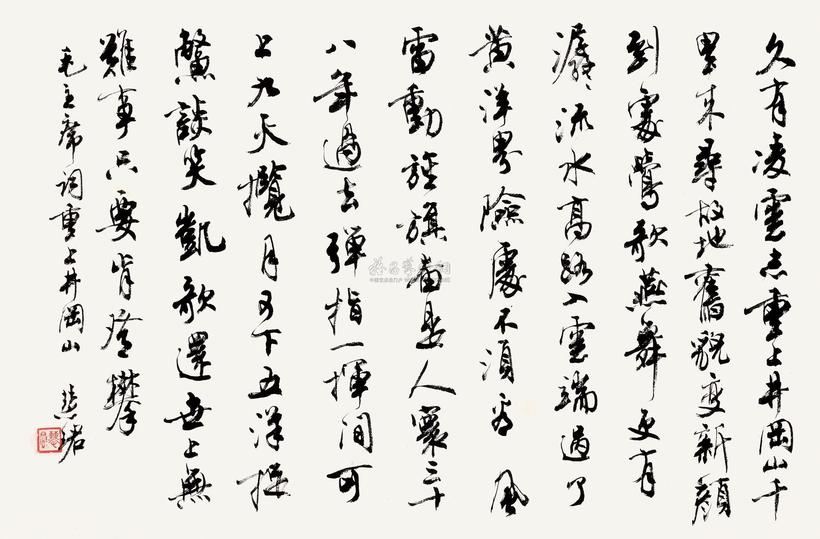 久有凌雲志重上井岡山千
里来尋故地舊貌变新顏
到處鶯歌燕舞更有
潺々流水高路入雲端過了
黄洋界險處不須看風
雷動旌旗奮是人寰三十
八年過去弹指一揮間可
上九天攬月可下五洋捉
鱉談笑凱歌還世上無
難事只要肯登攀
毛主席词重上井岡山 慧珺